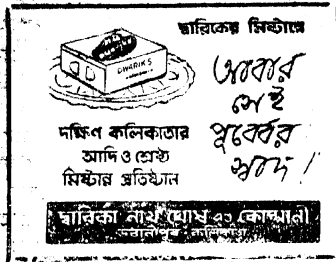 দ্বারিকের মিষ্টান্নে
আবার
সেই
পূর্ব্বের
স্বাদ!
DWARIK'S
দক্ষিণ কলিকাতার
আদি ও শ্রেষ্ঠ
মিষ্টান্ন প্রতিষ্ঠান
দ্বারিকা নাথ ঘোষ এণ্ড কোম্পানী
ভবানীপুর, কলিকাতা